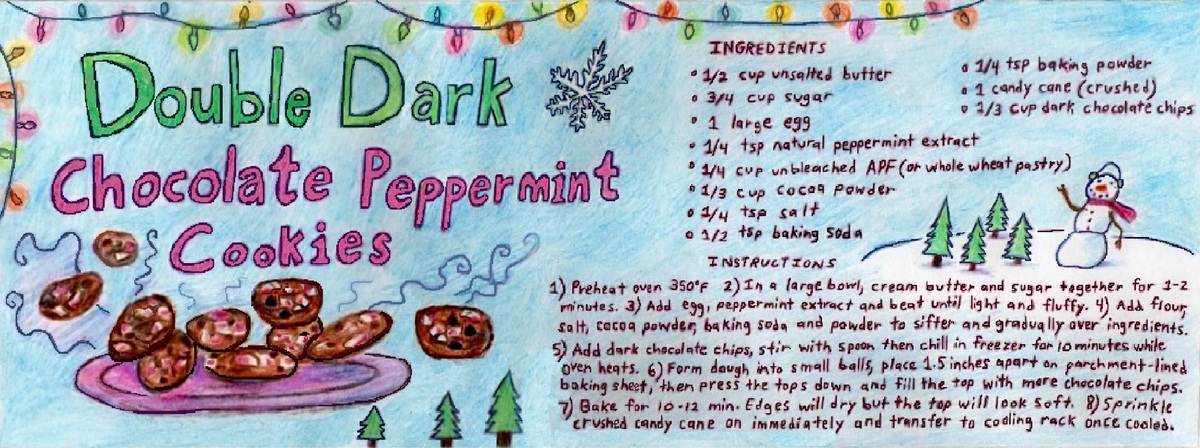 Double Dark
Chocolate Peppermint
Cookies
INGREDIENTS
• 1/2 cup unsalted butter
• 3/4 cup sugar
• 1 large egg
• 1/4 tsp natural peppermint extract
• 1/4 cup unbleached APF (or whole wheat pastry)
• 1/3 cup cocoa powder
• 1/4 tsp salt
• 1/2 tsp baking soda
• 1/4 tsp baking powder
• 1 candy cane (crushed)
• 1/3 cup dark chocolate chips
INSTRUCTIONS
1) Preheat oven 350°F 2) In a large bowl, cream butter and sugar together for 1-2
minutes. 3) Add egg, peppermint extract and beat until light and fluffy. 4) Add flour,
salt, cocoa powder, baking soda and powder to sifter and gradually over ingredients.
5) Add dark chocolate chips, stir with spoon then chill in freezer for 10 minutes while
oven heats. 6) Form dough into small balls, place 1.5 inches apart on parchment-lined
baking sheet, then press the tops down and fill the top with more chocolate chips.
7) Bake for 10-12 min. Edges will dry but the top will look soft. 8) Sprinkle
crushed candy cane on immediately and transfer to cooling rack once cooled.